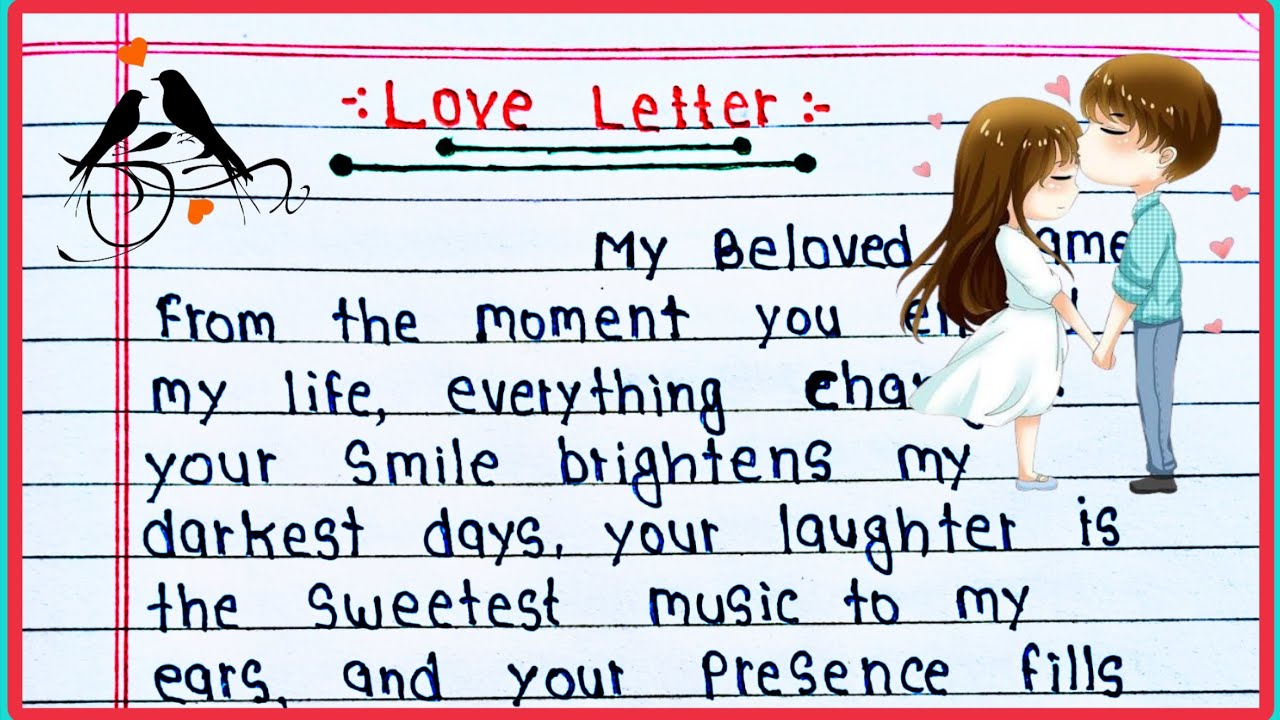 -: Love Letter :-
My Beloved
From the moment you
my life, everything
your smile brightens my
darkest days, your laughter is
the sweetest music to my
ears, and your Presence fills